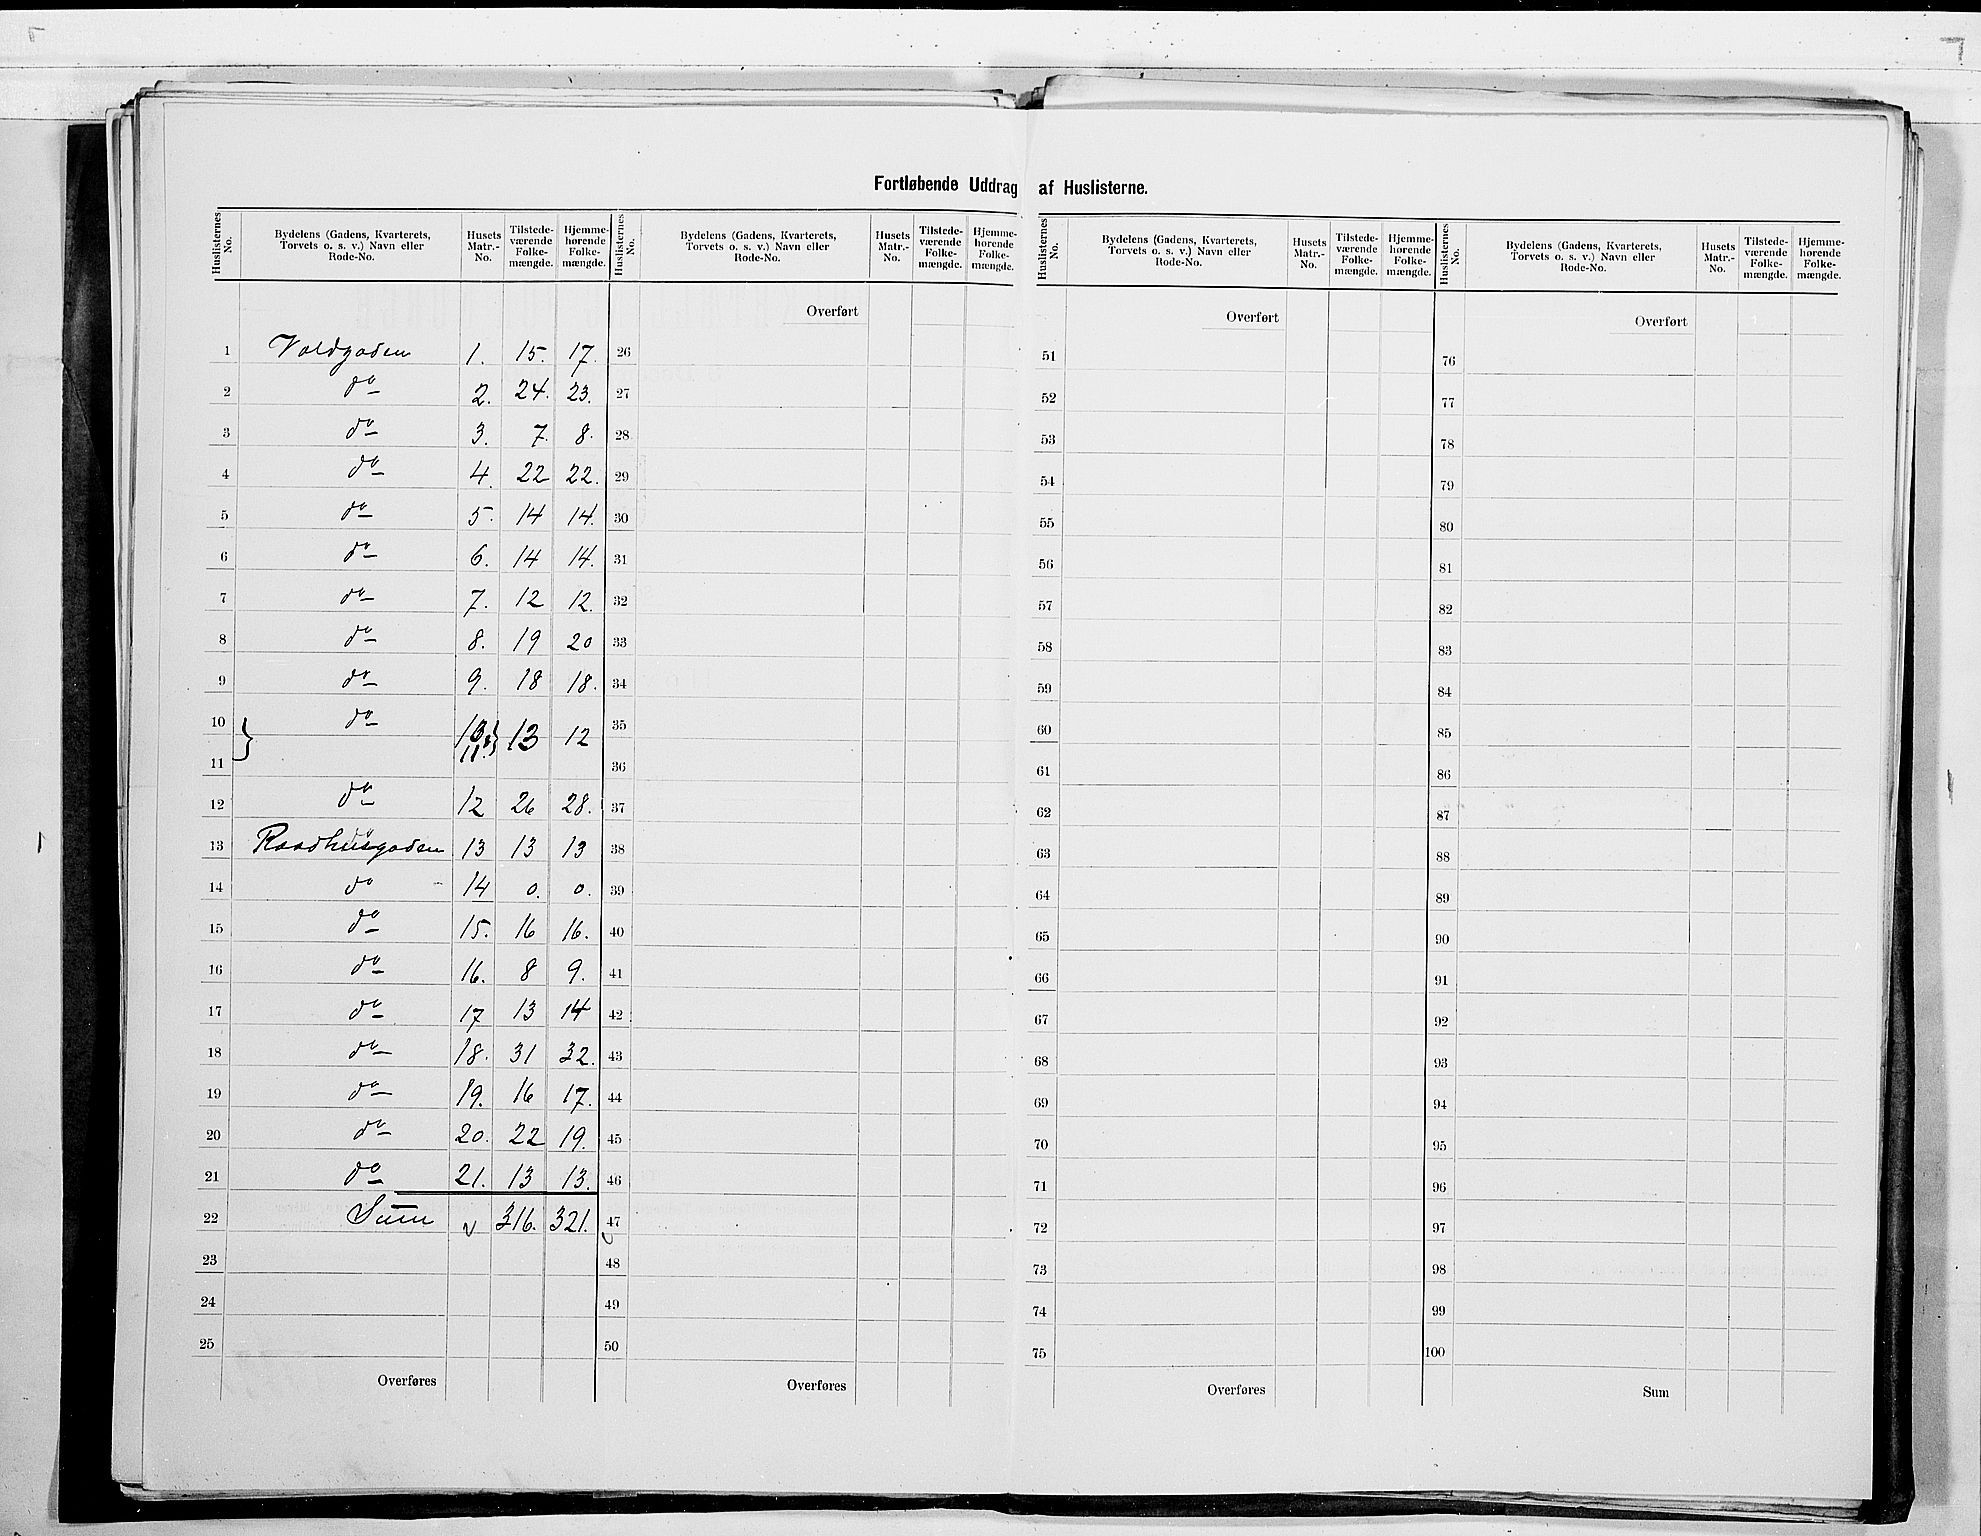 Fortløbende Uddrag af Huslisterne.
Huslisternes No. | Bydelens (Gadens, Kvarterets, Torvets o. s. v.) Navn eller Rode-No. | Husets Matr.-No. | Tilstedeværende Folkemængde. | Hjemmehørende Folkemængde. | Huslisternes No. | Bydelens (Gadens, Kvarterets, Torvets o. s. v.) Navn eller Rode-No. | Husets Matr.-No. | Tilstedeværende Folkemængde. | Hjemmehørende Folkemængde. | Huslisternes No. | Bydelens (Gadens, Kvarterets, Torvets o. s. v.) Navn eller Rode-No. | Husets Matr.-No. | Tilstedeværende Folkemængde. | Hjemmehørende Folkemængde. | Huslisternes No. | Bydelens (Gadens, Kvarterets, Torvets o. s. v.) Navn eller Rode-No. | Husets Matr.-No. | Tilstedeværende Folkemængde. | Hjemmehørende Folkemængde.
Overført | Overført | Overført
1 Voldgaden 1. 15. 17. 26 51 76
2 do 2. 24. 23. 27 52 77
3 do 3. 7. 8. 28 53 78
4 do 4. 22 22. 29 54 79
5 do 5. 14 14. 30 55 80
6 do 6. 14 14. 31 56 81
7 do 7. 12 12. 32 57 82
8 do 8. 19 20 33 58 83
9 do 9. 18 18. 34 59 84
10 do 10 13 12 35 60 85
11 } 11. } 36 61 86
12 do 12 26 28. 37 62 87
13 Raadhusgaden 13 13 13 38 63 88
14 do 14 0. 0. 39 64 89
15 do 15. 16 16. 40 65 90
16 do 16. 8 9. 41 66 91
17 do 17 13 14 42 67 92
18 do 18. 31 32. 43 68 93
19 do 19. 16 17. 44 69 94
20 do 20. 22 19. 45 70 95
21 do 21. 13 13. 46 71 96
22 Sum v 316. 321. 47 72 97
23 48 73 98
24 49 74 99
25 50 75 100
Overføres | Overføres | Overføres | Sum